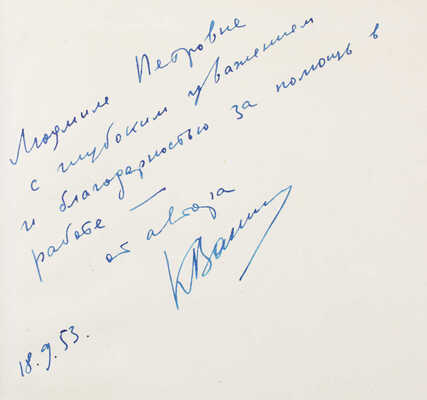 Людмиле Петровне
с глубоким уважением
и благодарностью за помощь в
работе —
от автора
18.9.53.